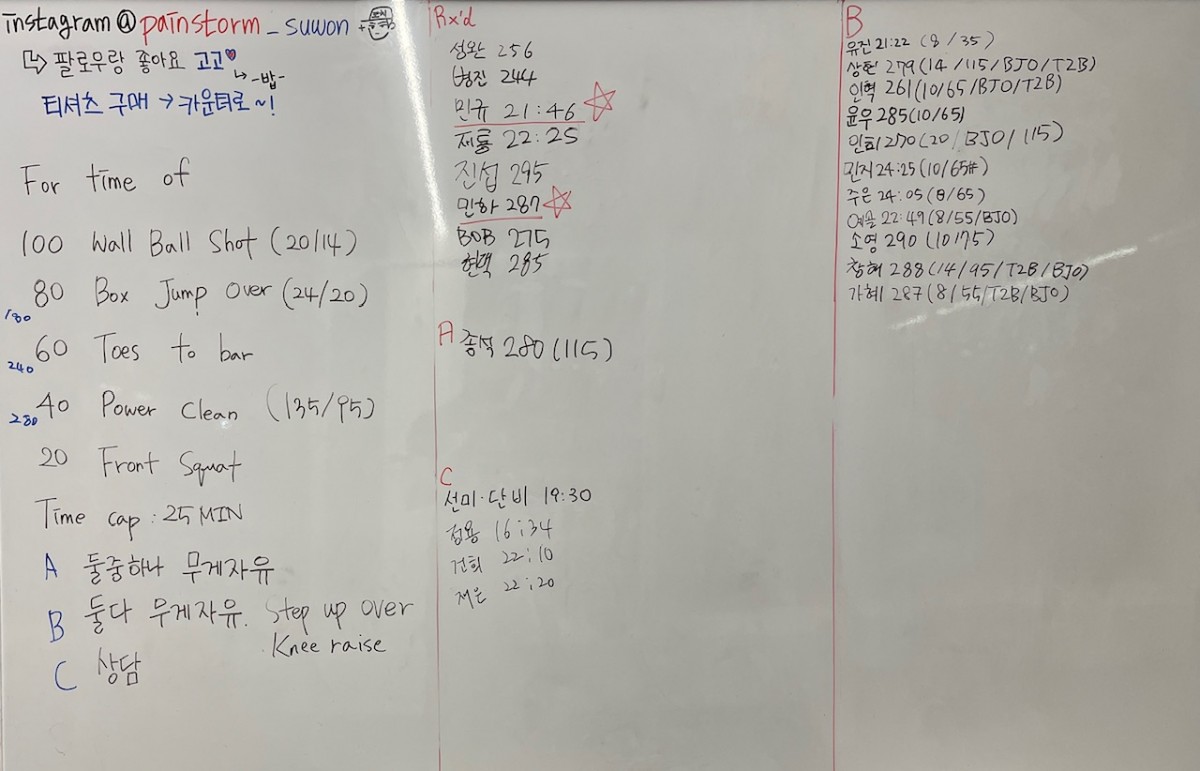 instagram@painstorm_suwon
팔로우랑 좋아요 고고
-밥-
티셔츠 구매 → 카운터로~!
For time of
100 Wall Ball Shot (20/14)
80 Box Jump Over (24/20)
180
60 Toes to bar
240
40 Power Clean (135/95)
280
20 Front Squat
Time cap : 25 MIN
A 둘중하나 무게자유
B 둘다 무게자유. Step up over
Knee raise
C 상담
Rx'd
성완 256
병진 244
민규 21:46
제룡 22:25
진섭 295
민하 287
BOB 275
현택 285
A
종석 280 (115)
C
선미·단비 19:30
정용 16:34
건희 22:10
재은 22:20
B
유진 21:22 (8/35)
상현 279 (14/115/BJO/T2B)
인혁 261 (10/65/BJO/T2B)
윤우 285 (10/65)
민희 270 (20/BJO/115)
민지 24:25 (10/65#)
주은 24:05 (8/65)
예슬 22:49 (8/55/BJO)
소영 290 (10/75)
창해 288 (14/95/T2B/BJO)
가혜 287 (8/55/T2B/BJO)